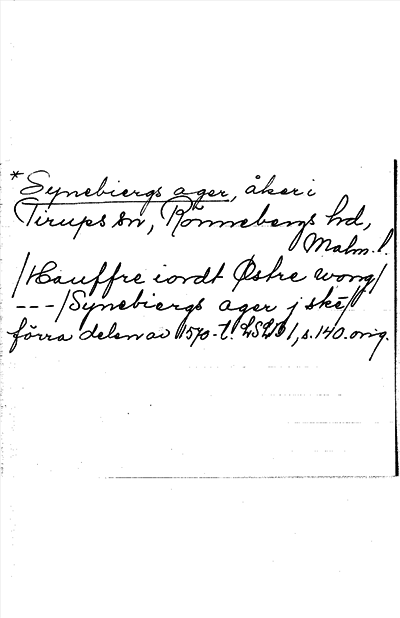 *Synebiergs ager, åker i
Tirups sn, Rönnebergs hd,
Malm. l.
/Hauffre iordt Østre wong/
---/Synebiergs ager j ske//
förra delen av 1570-t. LSLD 1, s. 140. orig.